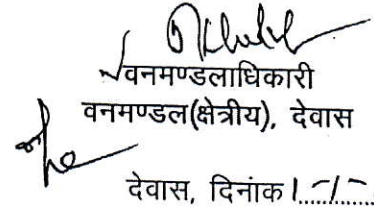 वनमण्डलाधिकारी
वनमण्डल(क्षेत्रीय), देवास
देवास, दिनांक